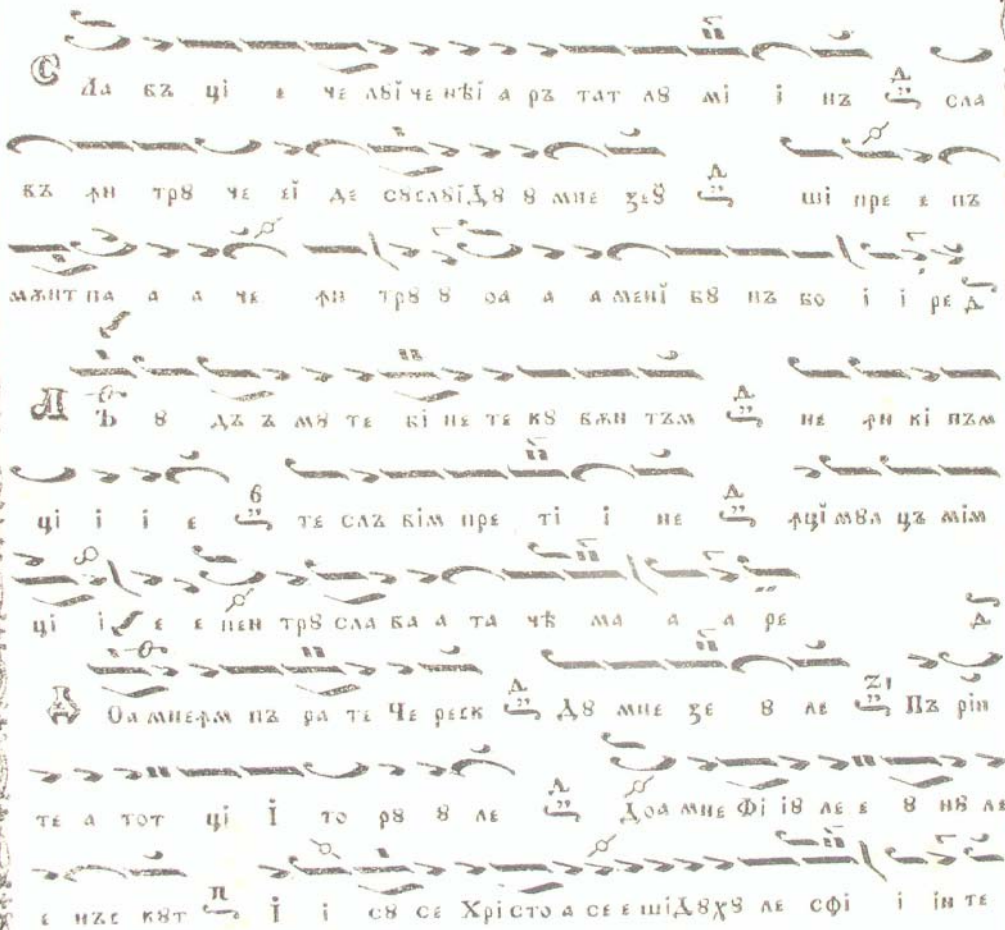 Сла въ ці є че лꙋї че нѣї а ръ тат лꙋ мі і нъ сла
въ ꙟн трꙋ че єї де сꙋслꙋї Дꙋ ꙋ мне ꙁєꙋ ші пре є пъ
мѫнт па а а че ꙟн трꙋ ꙋ оа а а мені бꙋ нъ во і і ре
Лъ ꙋ дъ ъ мꙋ те бі не те кꙋ вѫн тъм не ꙟн кі пъм
ці і і є те слъ вім пре ті і не ꙟцї мꙋл цъ мім
ці і є є пен трꙋ сла ва а та чѣ ма а а ре
Доа мне ꙟм пъ ра те Че реск Дꙋ мне ꙁе ꙋ ле Пъ рін
те а тот ці і то рꙋ ꙋ ле Доа мне Фі іꙋ ле є ꙋ нꙋ ле
є нъс кꙋт І і сꙋ се Хрі сто а се є ші Дꙋ хꙋ ле сфі і ін те